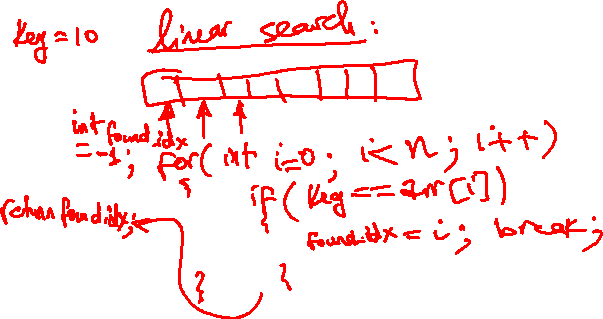 Key = 10
linear search :
int found idx
= -1;
for( int i=0 ; i< n ; i++)
{
if ( Key == arr [i])
{
found idx = i ; break ;
return found idx;
}
}